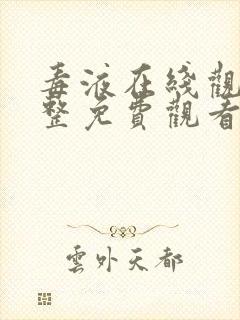 毒液在綫觀
整免費觀看
雲外天都